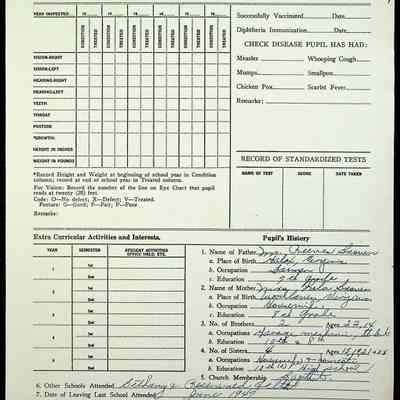 YEAR INSPECTED 19 19 19 19 19 19
CONDITION TREATED CONDITION TREATED CONDITION TREATED CONDITION TREATED CONDITION TREATED CONDITION TREATED
VISION-RIGHT
VISION-LEFT
HEARING-RIGHT
HEARING-LEFT
TEETH
THROAT
POSTURE
*GROWTH:
HEIGHT IN INCHES
WEIGHT IN POUNDS
*Record Height and Weight at beginning of school year in Condition
column; record at end of school year in Treated column.
For Vision: Record the number of the line on Eye Chart that pupil
reads at twenty (20) feet.
Code: O—No defect; X—Defect; V—Treated.
Posture: G—Good; F—Fair; P—Poor
Remarks:
Successfully Vaccinated Date
Diphtheria Immunization Date
CHECK DISEASE PUPIL HAS HAD:
Measles Whooping Cough
Mumps Smallpox
Chicken Pox Scarlet Fever
Remarks:
RECORD OF STANDARDIZED TESTS
NAME OF TEST SCORE DATE TAKEN
Extra Curricular Activities and Interests.
YEAR SEMESTER STUDENT ACTIVITIES OFFICE HELD, ETC.
1 1st
2nd
2 1st
2nd
3 1st
2nd
4 1st
2nd
5 1st
2nd
Pupil's History
1. Name of Father
a. Place of Birth Virginia
b. Occupation Farmer
c. Education 7th Grade
2. Name of Mother
a. Place of Birth Virginia
b. Occupation
c. Education 8th Grade
3. No. of Brothers 2 Ages
a. Occupations mechanic,
b. Education 12th & 8th
4. No. of Sisters Ages
a. Occupations
b. Education High school
5. Church Membership Baptist
6. Other Schools Attended
7. Date of Leaving Last School Attended June 1947